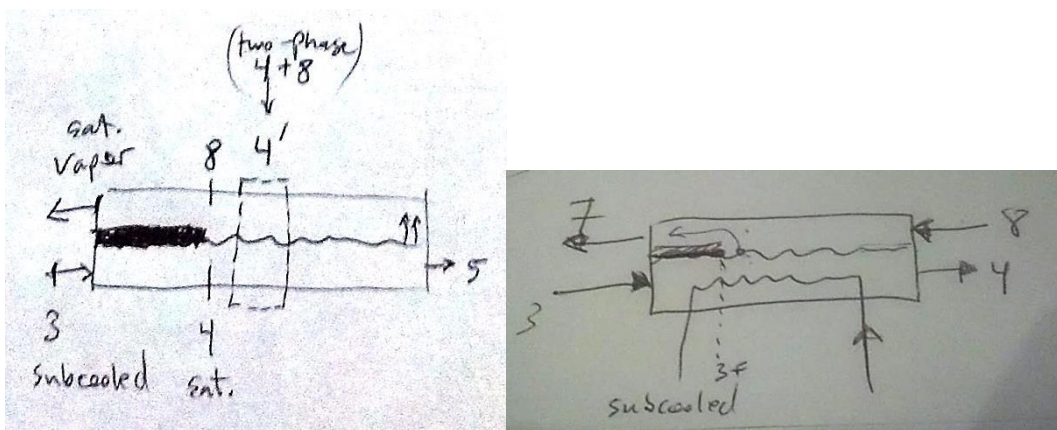 (two-phase)
4+8
sat.
vapor
8
4'
5
3
4
subcooled
sat.
7
8
3
4
3f
subcooled